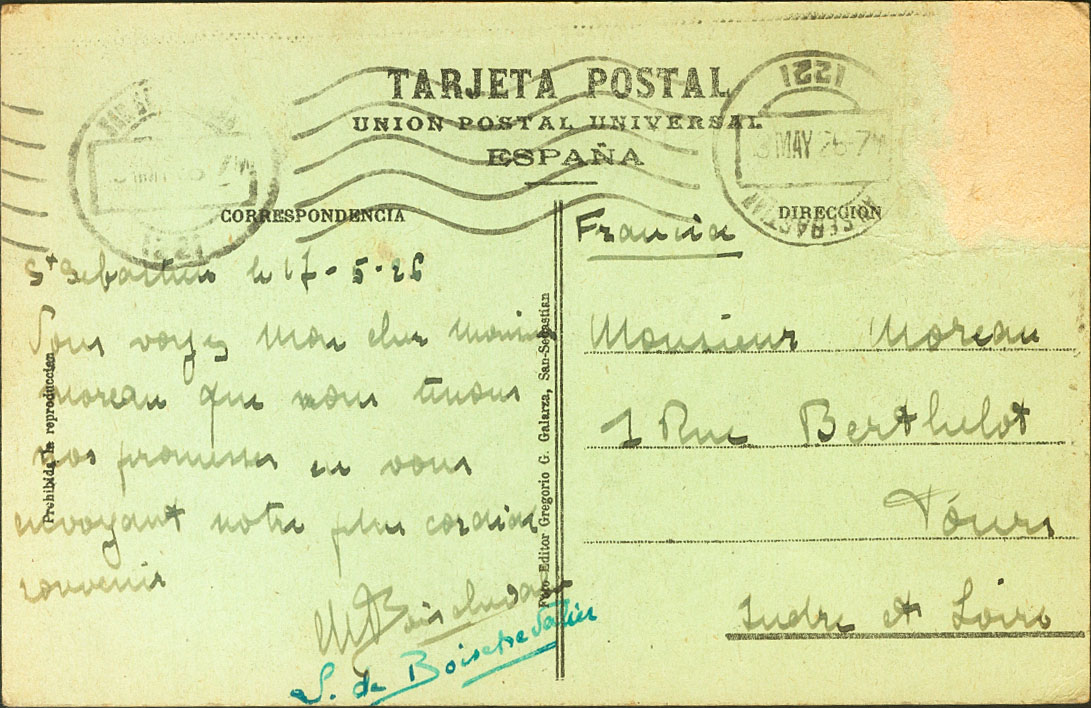 TARJETA POSTAL
UNION POSTAL UNIVERSAL
ESPAÑA
CORRESPONDENCIA
DIRECCION
1221
MAY 26-7
SEBASTIAN
1221
St Sebastien le 17-5-26
Vous voyez mon cher
Moreau que nous tenons
nos promesses en vous
envoyant notre plus cordial
souvenir
S. de
Prohibida la reproducción
Foto-Editor Gregorio G. Galarza, San-Sebastian
Francia
Monsieur Moreau
1 Rue Berthelot
Tours
Indre et Loire